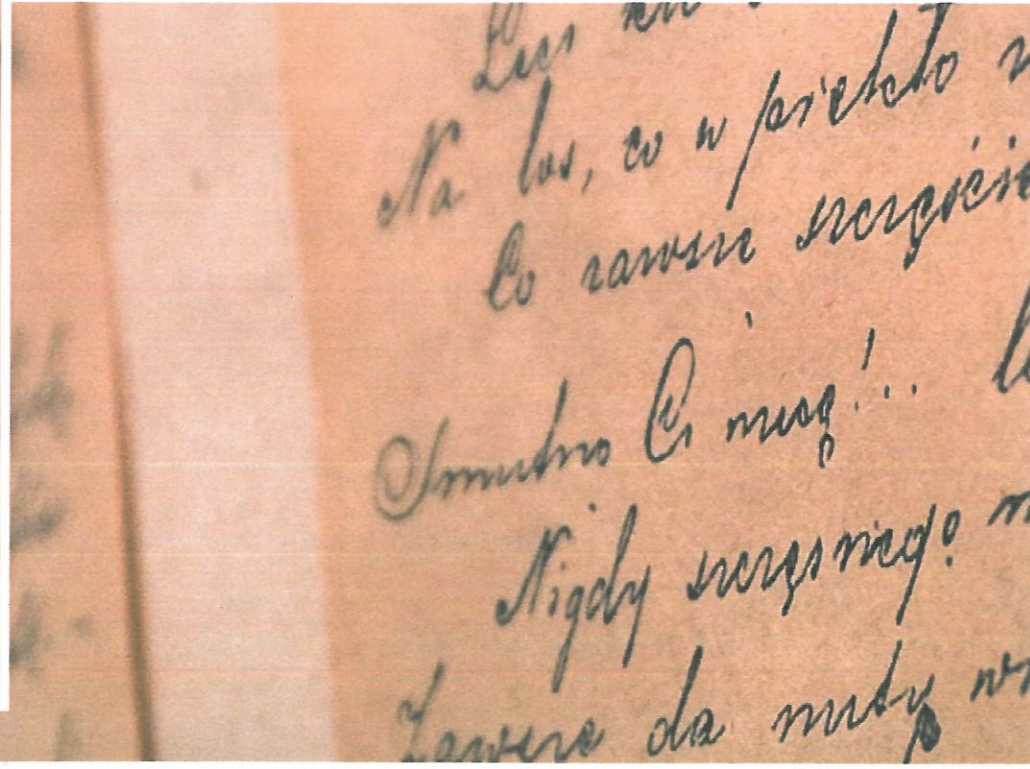 Na los, co w piekło
Co zawsze szczęści
Smutno Ci niosę!..
Nigdy szczęsnego
Zawsze da nuty